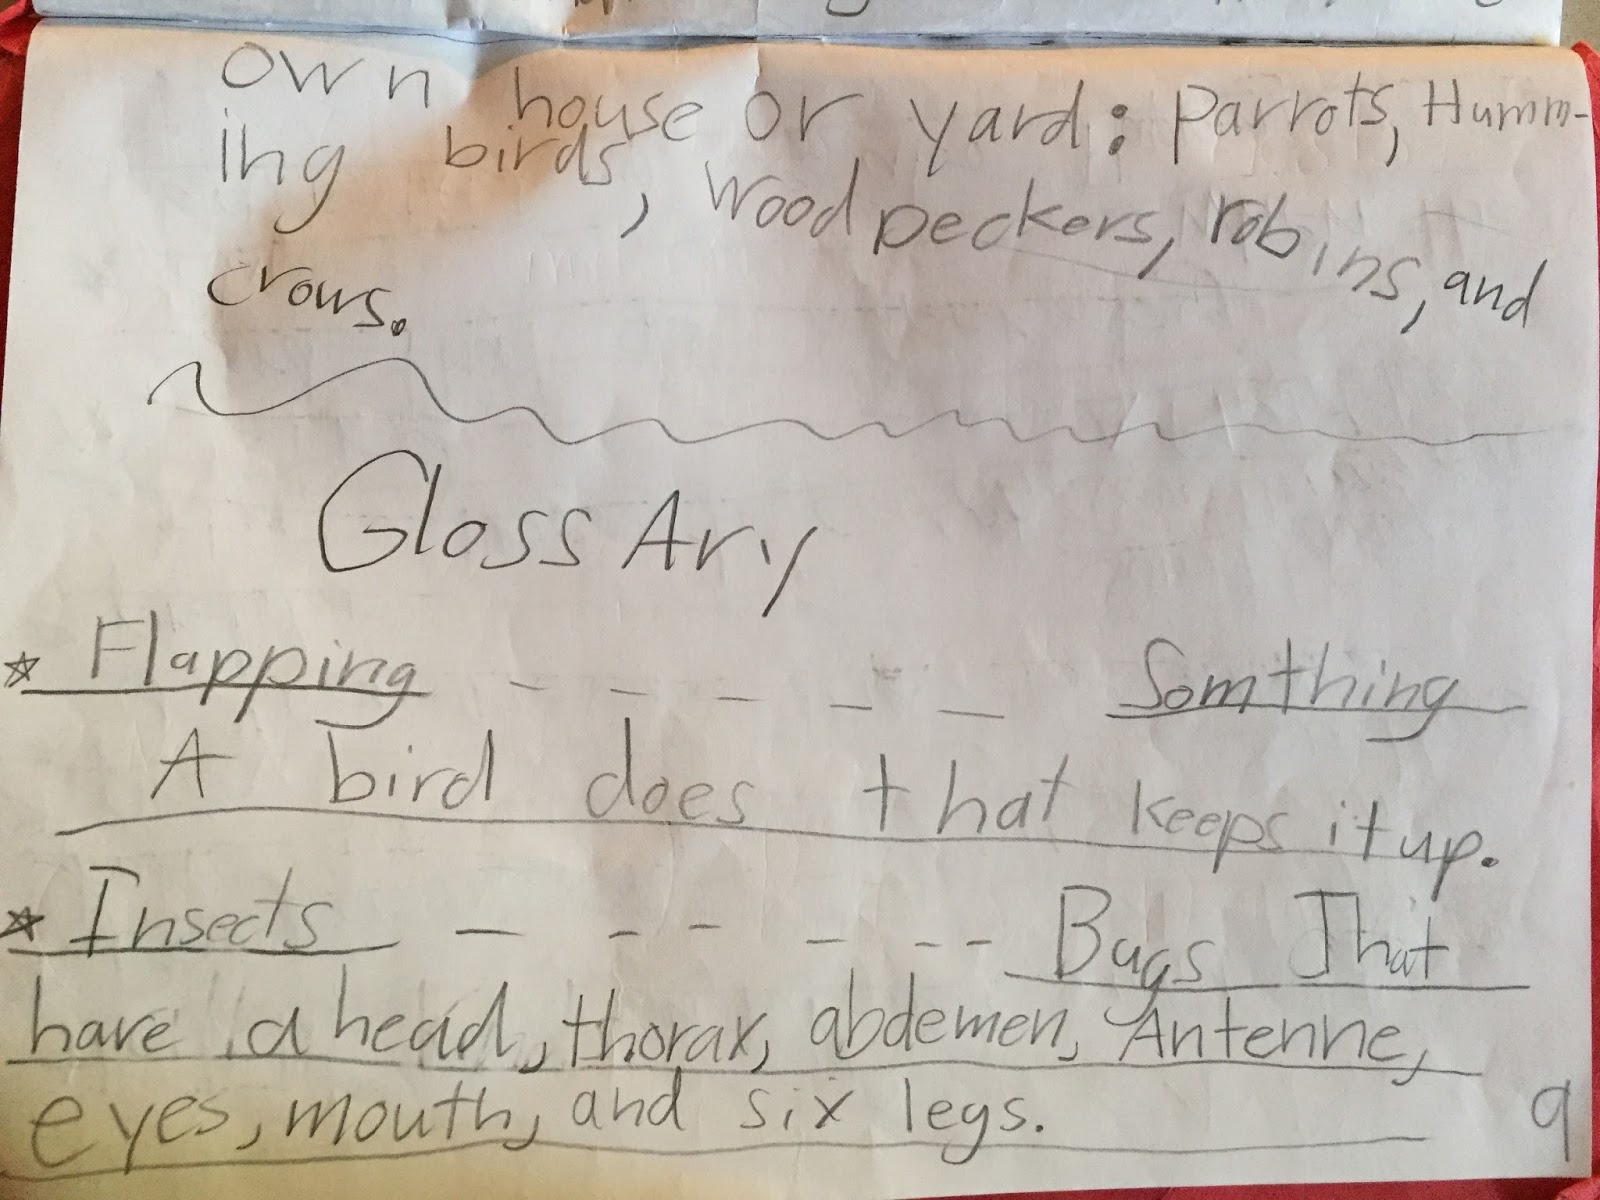 own house or yard: parrots, Humm-
ing birds, Woodpeckers, robins, and
crows.
GlossAry
Flapping - - - - - Somthing
A bird does that keeps it up.
Insects - - - - - - Bugs That
have a head, thorax, abdemen, Antenne,
eyes, mouth, and six legs.
9